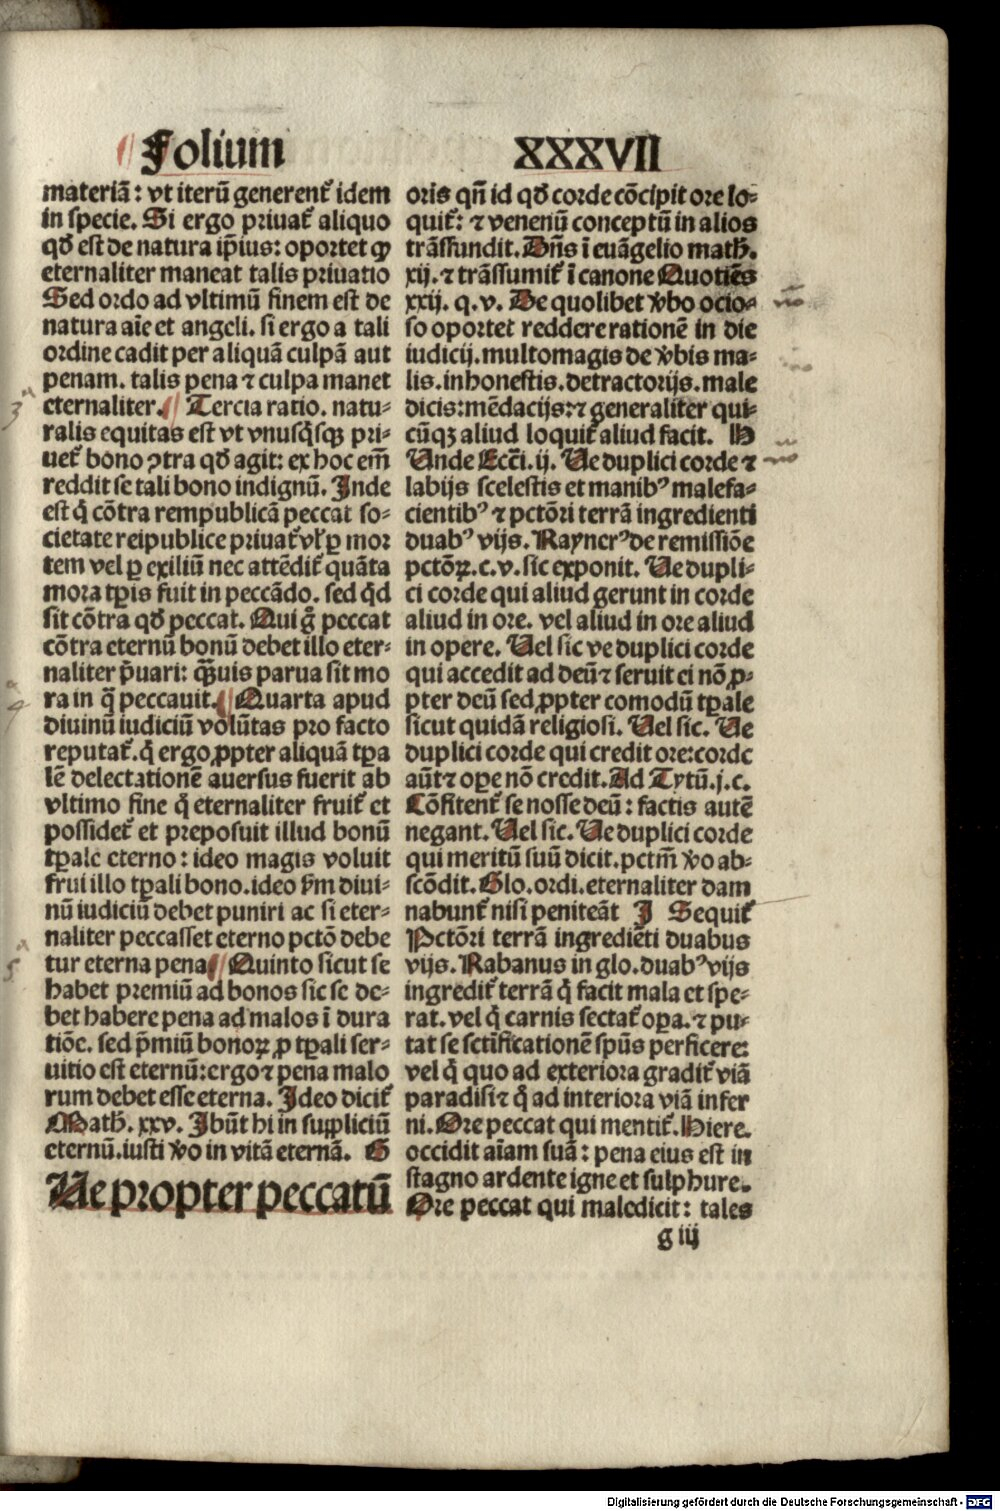 Folium XXXVII
materiā: vt iterū generent᷑ idem
in specie. Si ergo priuat᷑ aliquo
qđ est de natura ip̄ius: oportet ꝙ
eternaliter maneat talis priuatio
Sed ordo ad vltimū finem est de
natura aīe et angeli. si ergo a tali
ordine cadit per aliquā culpā aut
penam. talis pena ⁊ culpa manet
eternaliter. Tercia ratio. natu⸗
ralis equitas est vt vnusq̄sqꝫ pri⸗
uet᷑ bono ꝯtra qđ agit: ex hoc em̄
reddit se tali bono indignū. Inde
est q̄ cōtra rempublicā peccat so⸗
cietate reipublice priuat᷑ vl̓ ꝑ mor
tem vel ꝑ exiliū nec attēdit᷑ quāta
mora tꝑis fuit in peccādo. sed qd̄
sit cōtra qđ peccat. Qui g̊ peccat
cōtra eternū bonū debet illo eter⸗
naliter p̄uari: qꝫuis parua sit mo
ra in q̄ peccauit. Quarta apud
diuinū iudiciū volūtas pro facto
reputat᷑. q̄ ergo ꝓpter aliquā tꝑa
lē delectationē auersus fuerit ab
vltimo fine q̄ eternaliter fruit᷑ et
possidet᷑ et preposuit illud bonū
tꝑale eterno: ideo magis voluit
frui illo tꝑali bono. ideo ẜm diui⸗
nū iudiciū debet puniri ac si eter⸗
naliter peccasset eterno pctō debe
tur eterna pena Quinto sicut se
habet premiū ad bonos sic se de⸗
bet habere pena ad malos ī dura
tiōe. sed p̄miū bonoꝝ ꝓ tꝑali ser⸗
uitio est eternū: ergo ⁊ pena malo
rum debet esse eterna. Ideo dicit᷑
Math̄. xxv. Ibūt hi in suppliciū
eternū. iusti v̓o in vitā eternā. G
Ve propter peccatū
oris qn̄ id qđ corde cōcipit ore lo⸗
quit᷑: ⁊ venenū conceptū in alios
trāsfundit. Dn̄s ī euāgelio math̄.
xij. ⁊ trāssumit᷑ ī canone Quotiēs
xxij. q. v. De quolibet v̓bo ocio⸗
so oportet reddere rationē in die
iudicij. multomagis de v̓bis ma⸗
lis. inhonestis. detractorijs. male
dicis: mēdacijs: ⁊ generaliter qui⸗
cūqꝫ aliud loquit᷑ aliud facit. H
Unde Ecc̄i. ij. Ve duplici corde ⁊
labijs scelestis et manibꝰ malefa⸗
cientibꝰ ⁊ pctōri terrā ingredienti
duabꝰ vijs. Raynerꝰ de remissiōe
pctōꝝ. c. v. sic exponit. Ve dupli⸗
ci corde qui aliud gerunt in corde
aliud in ore. vel aliud in ore aliud
in opere. Uel sic ve duplici corde
qui accedit ad deū ⁊ seruit ei nō ꝓ⸗
pter deū sed ꝓpter comodū tꝑale
sicut quidā religiosi. Uel sic. Ve
duplici corde qui credit ore: corde
aūt ⁊ oꝑe nō credit. Ad Tytū. j. c.
Cōfitent᷑ se nosse deū: factis autē
negant. Uel sic. Ve duplici corde
qui meritū suū dicit. pctm̄ v̓o ab⸗
scōdit. Glo. ordi. eternaliter dam
nabunt᷑ nisi peniteāt I Sequit᷑
Pctōri terrā ingrediēti duabus
vijs. Rabanus in glo. duabꝰ vijs
ingredit᷑ terrā q̄ facit mala et spe⸗
rat. vel q̄ carnis sectat᷑ oꝑa. ⁊ pu⸗
tat se sctīficationē spūs perficere:
vel q̄ quo ad exteriora gradit᷑ viā
paradisi ⁊ q̄ ad interiora viā infer
ni. Ore peccat qui mentit᷑. Hiere.
occidit aīam suā: pena eius est in
stagno ardente igne et sulphure.
Ore peccat qui maledicit: tales
g iij
3ᵃ
4ᵃ
5ᵃ
Digitalisierung gefördert durch die Deutsche Forschungsgemeinschaft - DFG